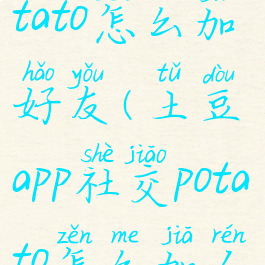 tato怎么加
hǎo yǒu tǔ dòu
好友(土豆
shè jiāo
app社交pota
zěn me jiā rén